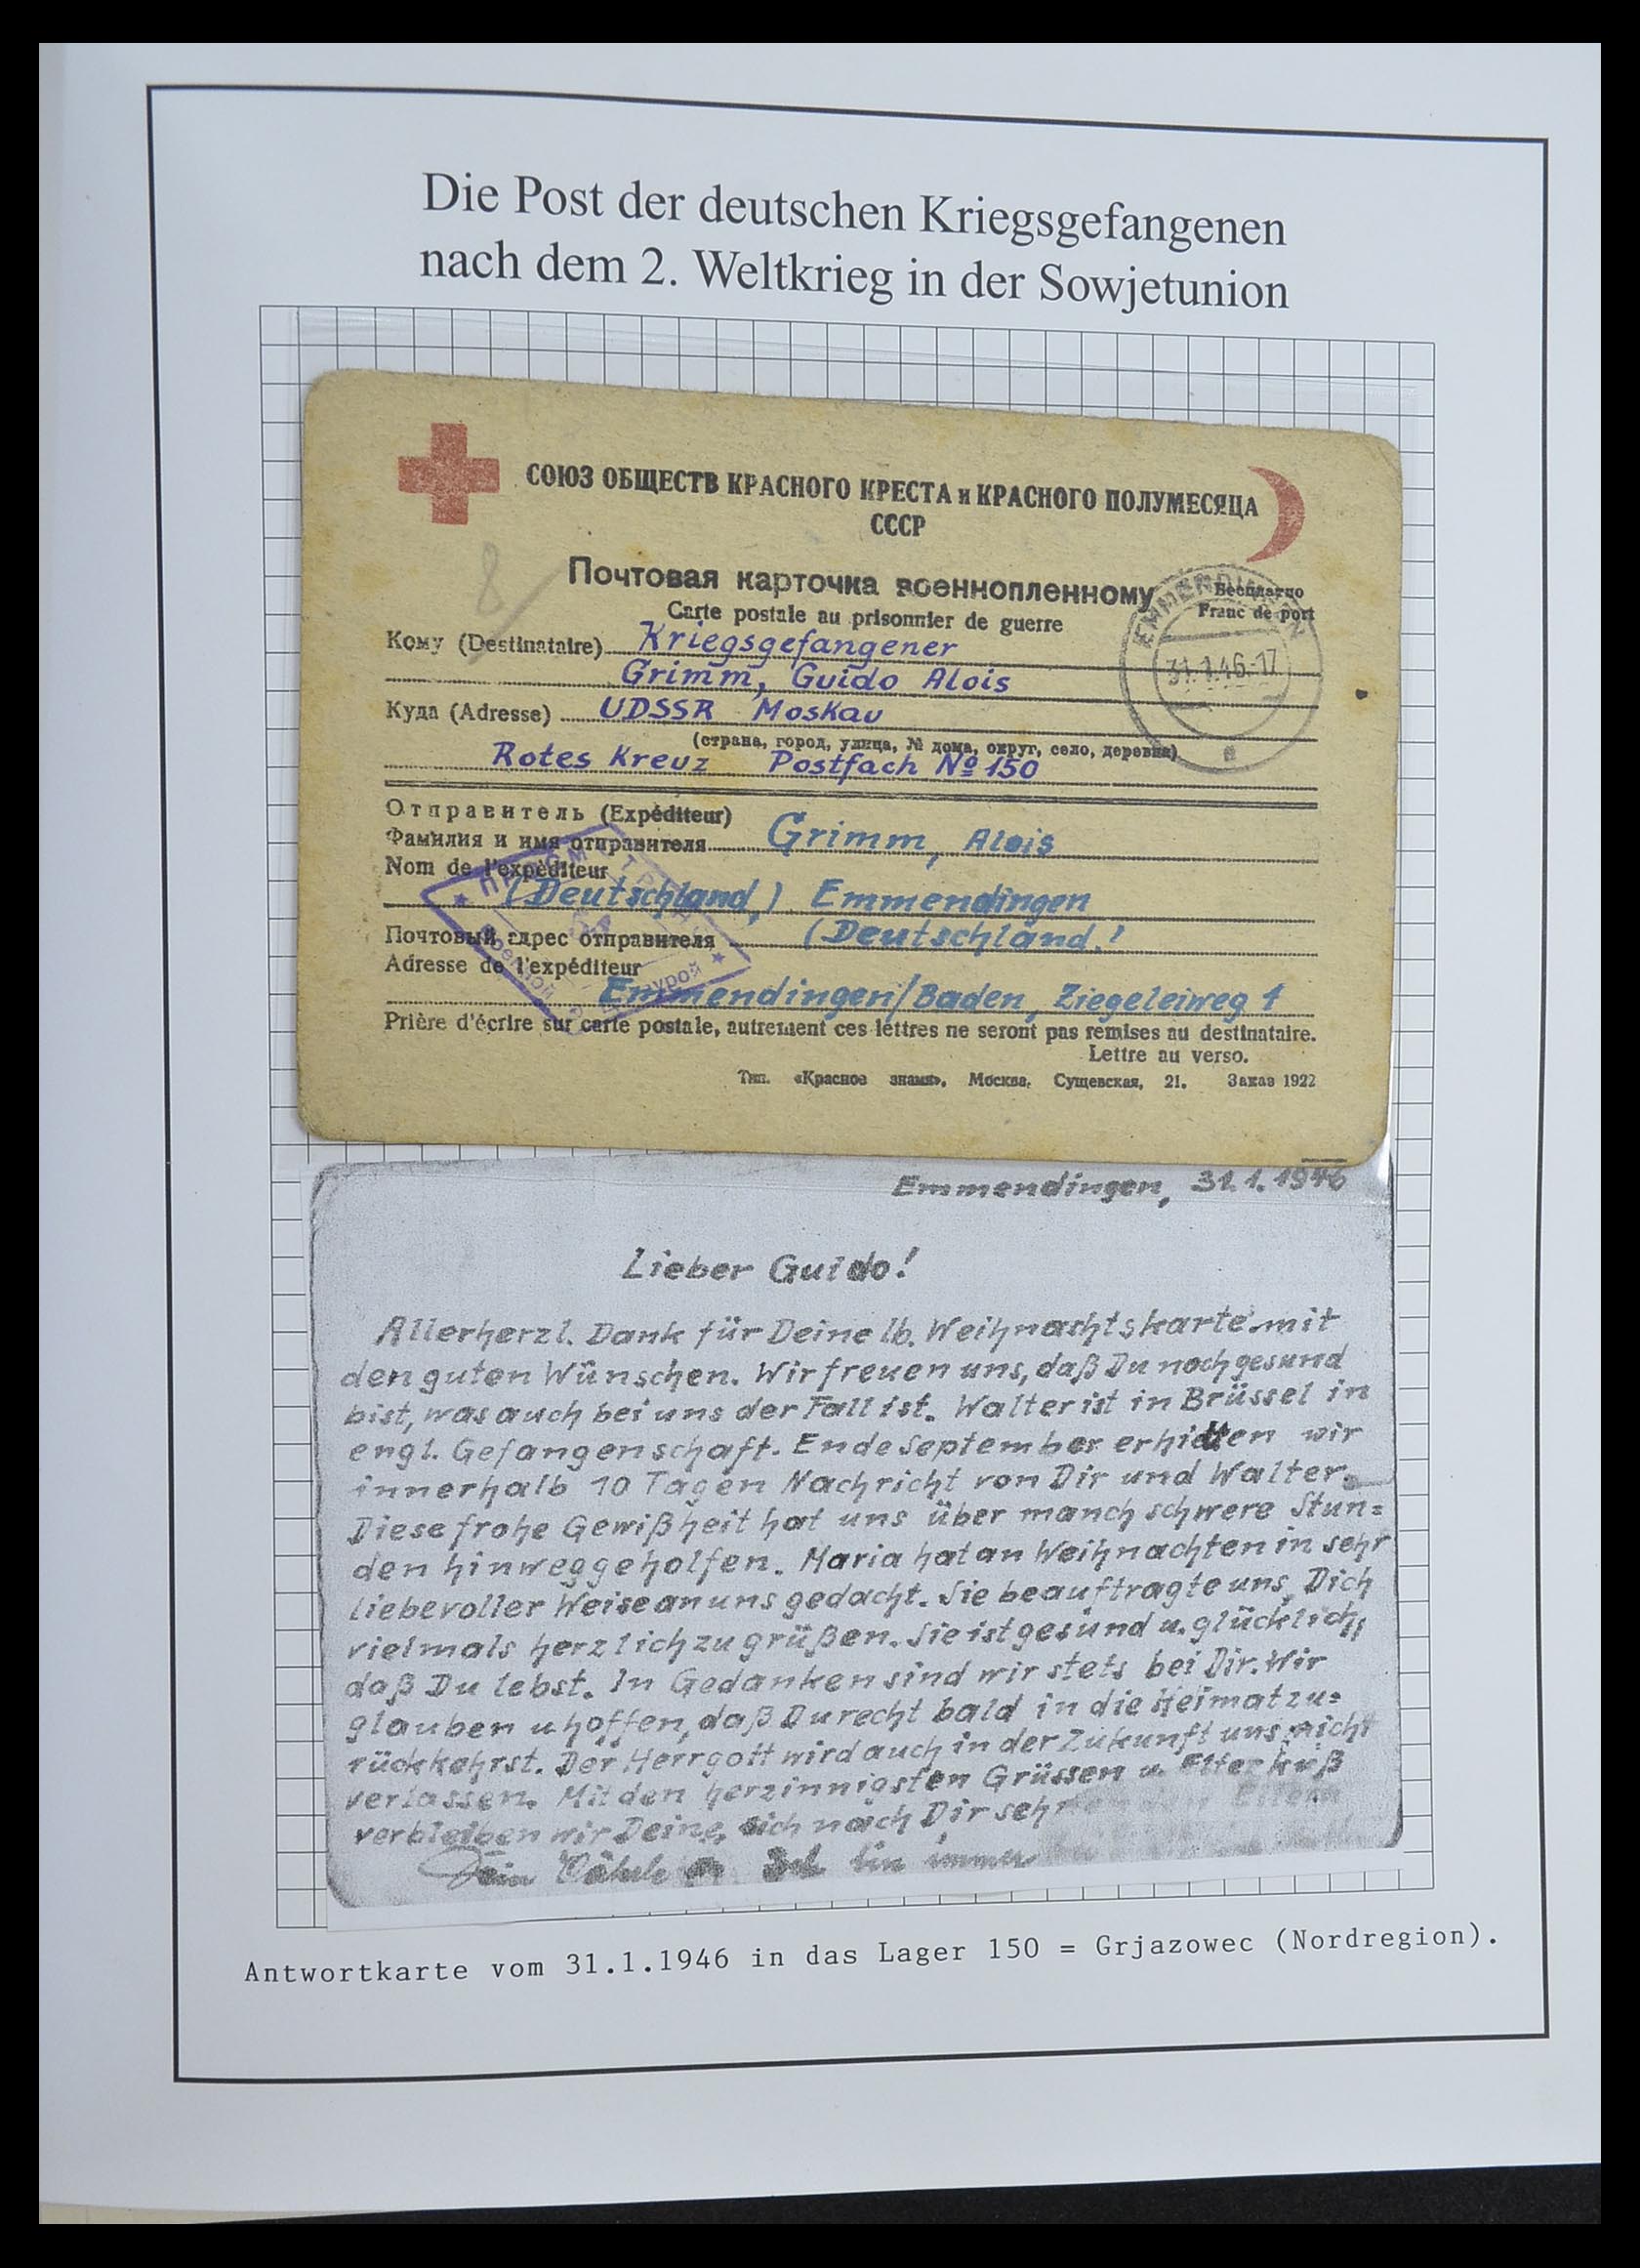 Die Post der deutschen Kriegsgefangenen
nach dem 2. Weltkrieg in der Sowjetunion
СОЮЗ ОБЩЕСТВ КРАСНОГО КРЕСТА и КРАСНОГО ПОЛУМЕСЯЦА
СССР
8
Почтовая карточка военнопленному
Бесплатно
Carte postale au prisonnier de guerre
Franc de port
EMMENDINGEN
31.1.46.-17
a
Кому (Destinataire) Kriegsgefangener
Grimm, Guido Alois
Куда (Adresse) UDSSR Moskau
(страна, город, улица, № дома, округ, село, деревня)
Rotes Kreuz Postfach № 150
Отправитель (Expéditeur)
Фамилия и имя отправителя Grimm, Alois
Nom de l'expéditeur
(Deutschland,) Emmendingen
Почтовый адрес отправителя (Deutschland!
Adresse de l'expéditeur
Emmendingen/Baden, Ziegeleiweg 1
Prière d'écrire sur carte postale, autrement ces lettres ne seront pas remises au destinataire.
Lettre au verso.
Тип. «Красное знамя», Москва, Сущевская, 21. Заказ 1922
Emmendingen, 31.1.1946
Lieber Guido!
Allerherzl. Dank für Deine lb. Weihnachtskarte mit
den guten Wünschen. Wir freuen uns, daß Du noch gesund
bist, was auch bei uns der Fall ist. Walter ist in Brüssel in
engl. Gefangenschaft. Ende September erhielten wir
innerhalb 10 Tagen Nachricht von Dir und Walter.
Diese frohe Gewißheit hat uns über manch schwere Stun=
den hinweggeholfen. Maria hat an Weihnachten in sehr
liebevoller Weise an uns gedacht. Sie beauftragte uns, Dich
vielmals herzlich zu grüßen. Sie ist gesund u. glücklich,
daß Du lebst. In Gedanken sind wir stets bei Dir. Wir
glauben u. hoffen, daß Du recht bald in die Heimat zu=
rückkehrst. Der Herrgott wird auch in der Zukunft uns nicht
verlassen. Mit den herzinnigsten Grüssen u. Elternkuß
verbleiben wir Deine, sich nach Dir Eltern
Dein bin immer
Antwortkarte vom 31.1.1946 in das Lager 150 = Grjazowec (Nordregion).